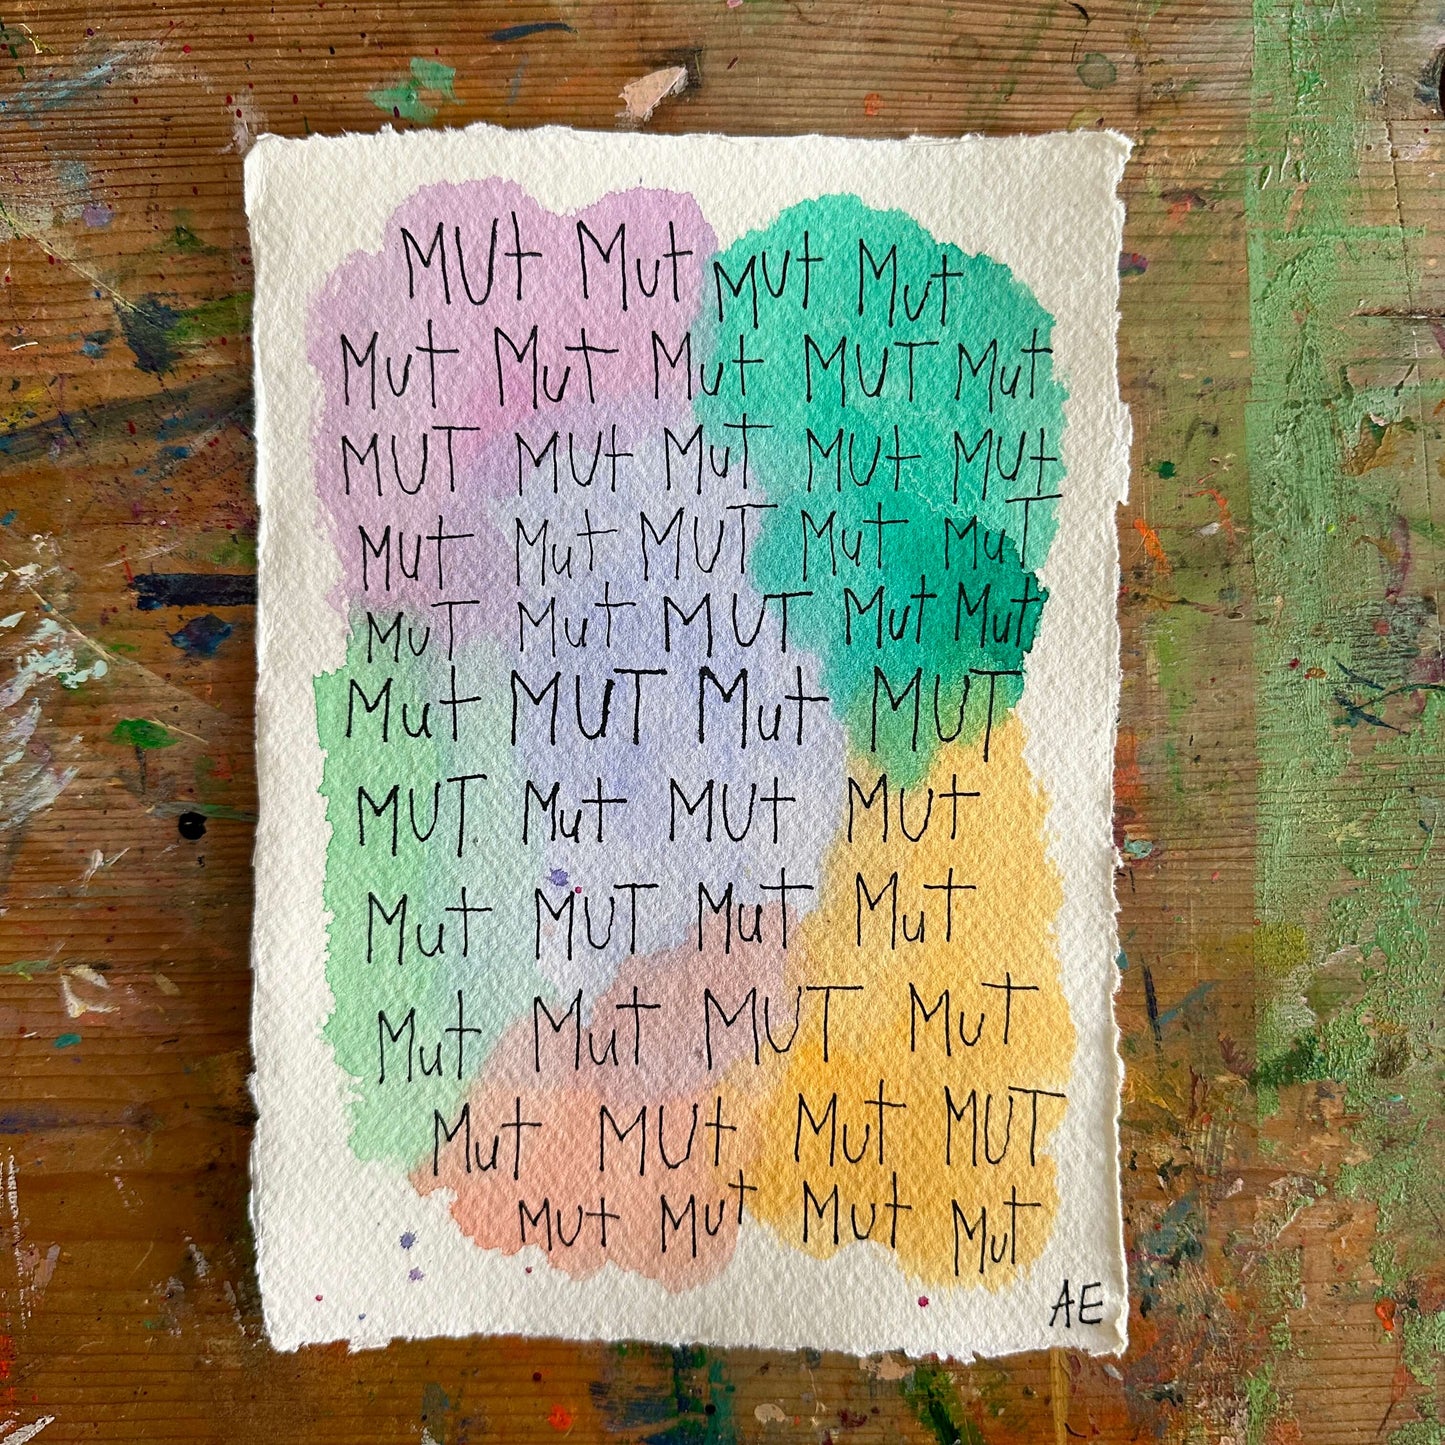 MUt Mut MUt Mut
Mut Mut Mut MUT Mut
MUT MUt MuT MUt MUt
Mut Mut MUT Mut MuT
MuT Mut MUT Mut Mut
Mut MUT Mut MUT
MUT Mut MUt MUt
Mut MUT Mut Mut
Mut Mut MUT Mut
Mut MUt Mut MUT
MUt Mut MUt Mut
AE